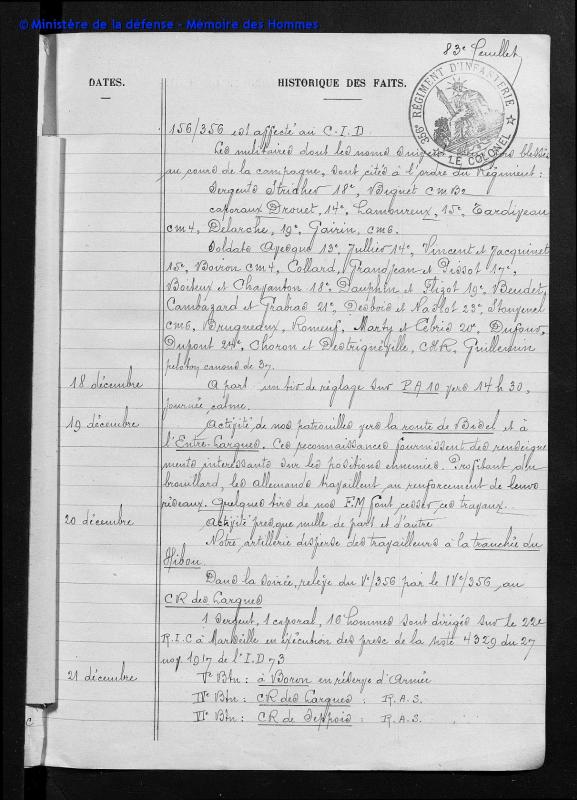 © Ministère de la défense - Mémoire des Hommes
83e feuillet
DATES.
HISTORIQUE DES FAITS.
356e RÉGIMENT D'INFANTERIE
LE COLONEL
156/356 est affecté au C.I.D.
Les militaires dont les noms blessés
au cours de la campagne, sont cités à l'ordre du Régiment :
Sergents Stricher 18e, Begnet CMB2
caporaux Drouet, 14e, Lamoureux, 15e, Tardiveau
CM4, Delarche, 19e, Gairin, CM6.
Soldats 13e, Jullier 14e, Vincent et Jacquinet
15e, Boiron CM4, Collard, Grandjean et Pissot 17e,
Boiteux et Chazanton 18e, Dauphin et Flizot 19e, Beudet,
Cambazard et Grabias 21e, Desbois et Nadlot 23e,
CM6, Brugneaux, Romeuf, Marty et Cebrie 20e, Dufour,
Dupont 24e, Choron et Destrignéville, CHR, Guillemin
peloton canons de 37.
18 décembre
A part un tir de réglage sur PA10 vers 14 h 30,
journée calme.
19 décembre
Activité de nos patrouilles vers la route de Bisel et à
l'Entre-Largues. Ces reconnaissances fournissent des renseigne
ments intéressants sur les positions ennemies. Profitant du
brouillard, les allemands travaillent au renforcement de leurs
réseaux. Quelques tirs de nos F.M font cesser ces travaux.
20 décembre
Activité presque nulle de part et d'autre
Notre artillerie disperse des travailleurs à la tranchée du
Hibou.
Dans la soirée, relève du Ve/356 par le IVe/356, au
CR des Largues
1 sergent, 1 caporal, 10 hommes sont dirigés sur le 22e
R.I.C à Marseille en exécution des presc de la note 4329 du 27
nov 1917 de l'I.D 73
21 décembre
Ve Btn : à Boron en réserve d'Armée
IVe Btn : CR des Largues : R.A.S.
VIe Btn : CR de Seppois : R.A.S.